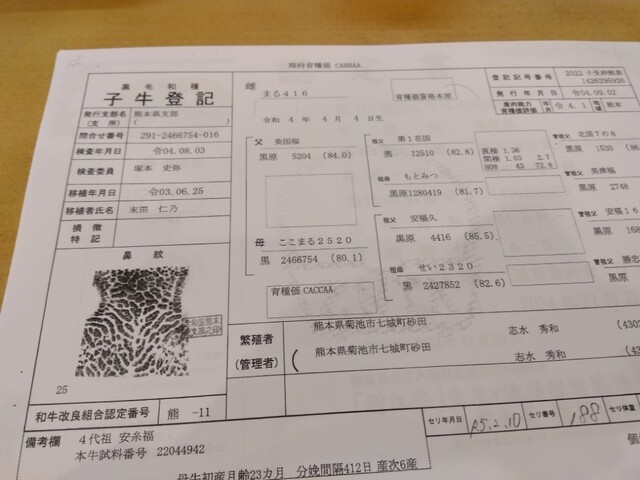 期待育種価 CACCAA
黒毛和種
子牛登記
発行支部名 熊本県支部
(支所) ( )
問合せ番号 291-2466754-016
検査年月日 令04.08.03
検査委員 塚本 史弥
移植年月日 令03.06.25
移植者氏名 末田 仁乃
損徴
特記
鼻紋
25
和牛改良組合認定番号 熊 -11
備考欄 4代祖 安糸福
本牛試料番号 22044942
母牛初産月齢23カ月 分娩間隔412日 産次6産
雌 まる416
育種価資格本原
令和 4年 4月 4日生
登記記号番号 2022 子受卵熊黒
1426295926
発行年月日 令04.09.02
産肉能力 年
育種価評価 月 令4.1 地域 熊本
父 美国桜
黒原 5204 (84.0)
母 ここまる2520
黒 2466754 (80.1)
育種価 CACCAA
祖父 第1花国
黒 12510 (82.8)
祖母 もとみつ
黒原1280419 (81.7)
祖父 安福久
黒原 4416 (85.5)
祖母 せい2320
黒 2427852 (82.6)
直検 1.36
間検 1.03 2.7
H08 43 72.8
曽祖父 北国7の8
黒原 1530
曽祖父 美津福
黒原 2748
曽祖父 安福16
黒原
曽祖父 勝忠
黒原
繁殖者 熊本県菊池市七城町砂田 志水 秀和
(管理者) ( 熊本県菊池市七城町砂田 志水 秀和
セリ年月日 R5.2.10 セリ番号 188 セリ体重